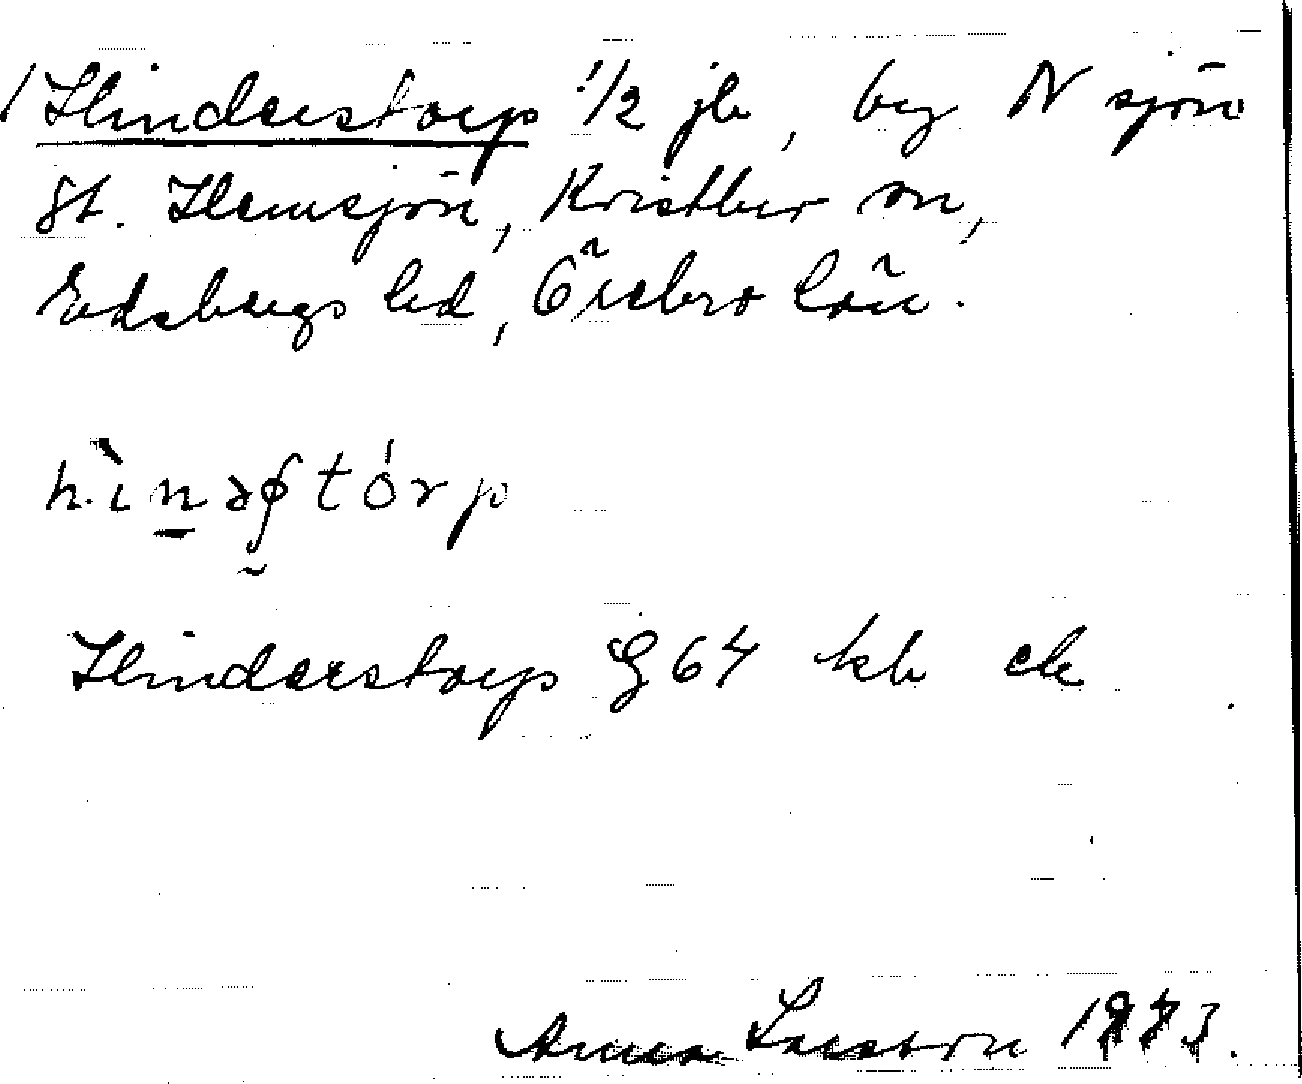 Hinderstorp 1/2 jb, by N sjön
St. Hemsjön, Kristber sn,
Edsbergs hd, Örebro län.
Hinderstorp G64 kb ek
Anna Larsson 1973.